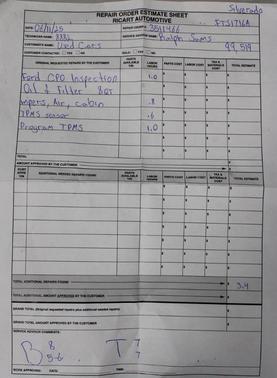 Silverado
REPAIR ORDER ESTIMATE SHEET
RICART AUTOMOTIVE
DATE
REPAIR ORDER
FTS1716A
TECHNICIAN NAME
SERVICE ADVISOR
Ralph Sams
CUSTOMER'S NAME: Used Cars
99,519
CUSTOMER CONTACTED: YES NO
ORIGINAL REQUESTED REPAIRS BY THE CUSTOMER PARTS AVAILABLE Y/N LABOR HOURS PARTS COST LABOR COST TAX & MATERIALS COST TOTAL ESTIMATE
Ford CPO Inspection 1.0
Oil & Filter 8QT
wipers, Air, cabin .8
TPMS sensor .6
Program TPMS 1.0
TOTAL
AMOUNT APPROVED BY THE CUSTOMER
ADDITIONAL REPAIRS FOUND PARTS AVAILABLE Y/N LABOR HOURS PARTS COST LABOR COST TAX & MATERIALS COST TOTAL ESTIMATE
TOTAL ADDITIONAL REPAIRS FOUND 3.4
TOTAL ADDITIONAL AMOUNT APPROVED BY THE CUSTOMER
GRAND TOTAL (Original requested repairs plus additional needed repairs)
GRAND TOTAL AMOUNT APPROVED BY THE CUSTOMER
SERVICE ADVISOR COMMENTS:
B 8 T 7
5-6 7
WORK APPROVED: DATE: TIME: